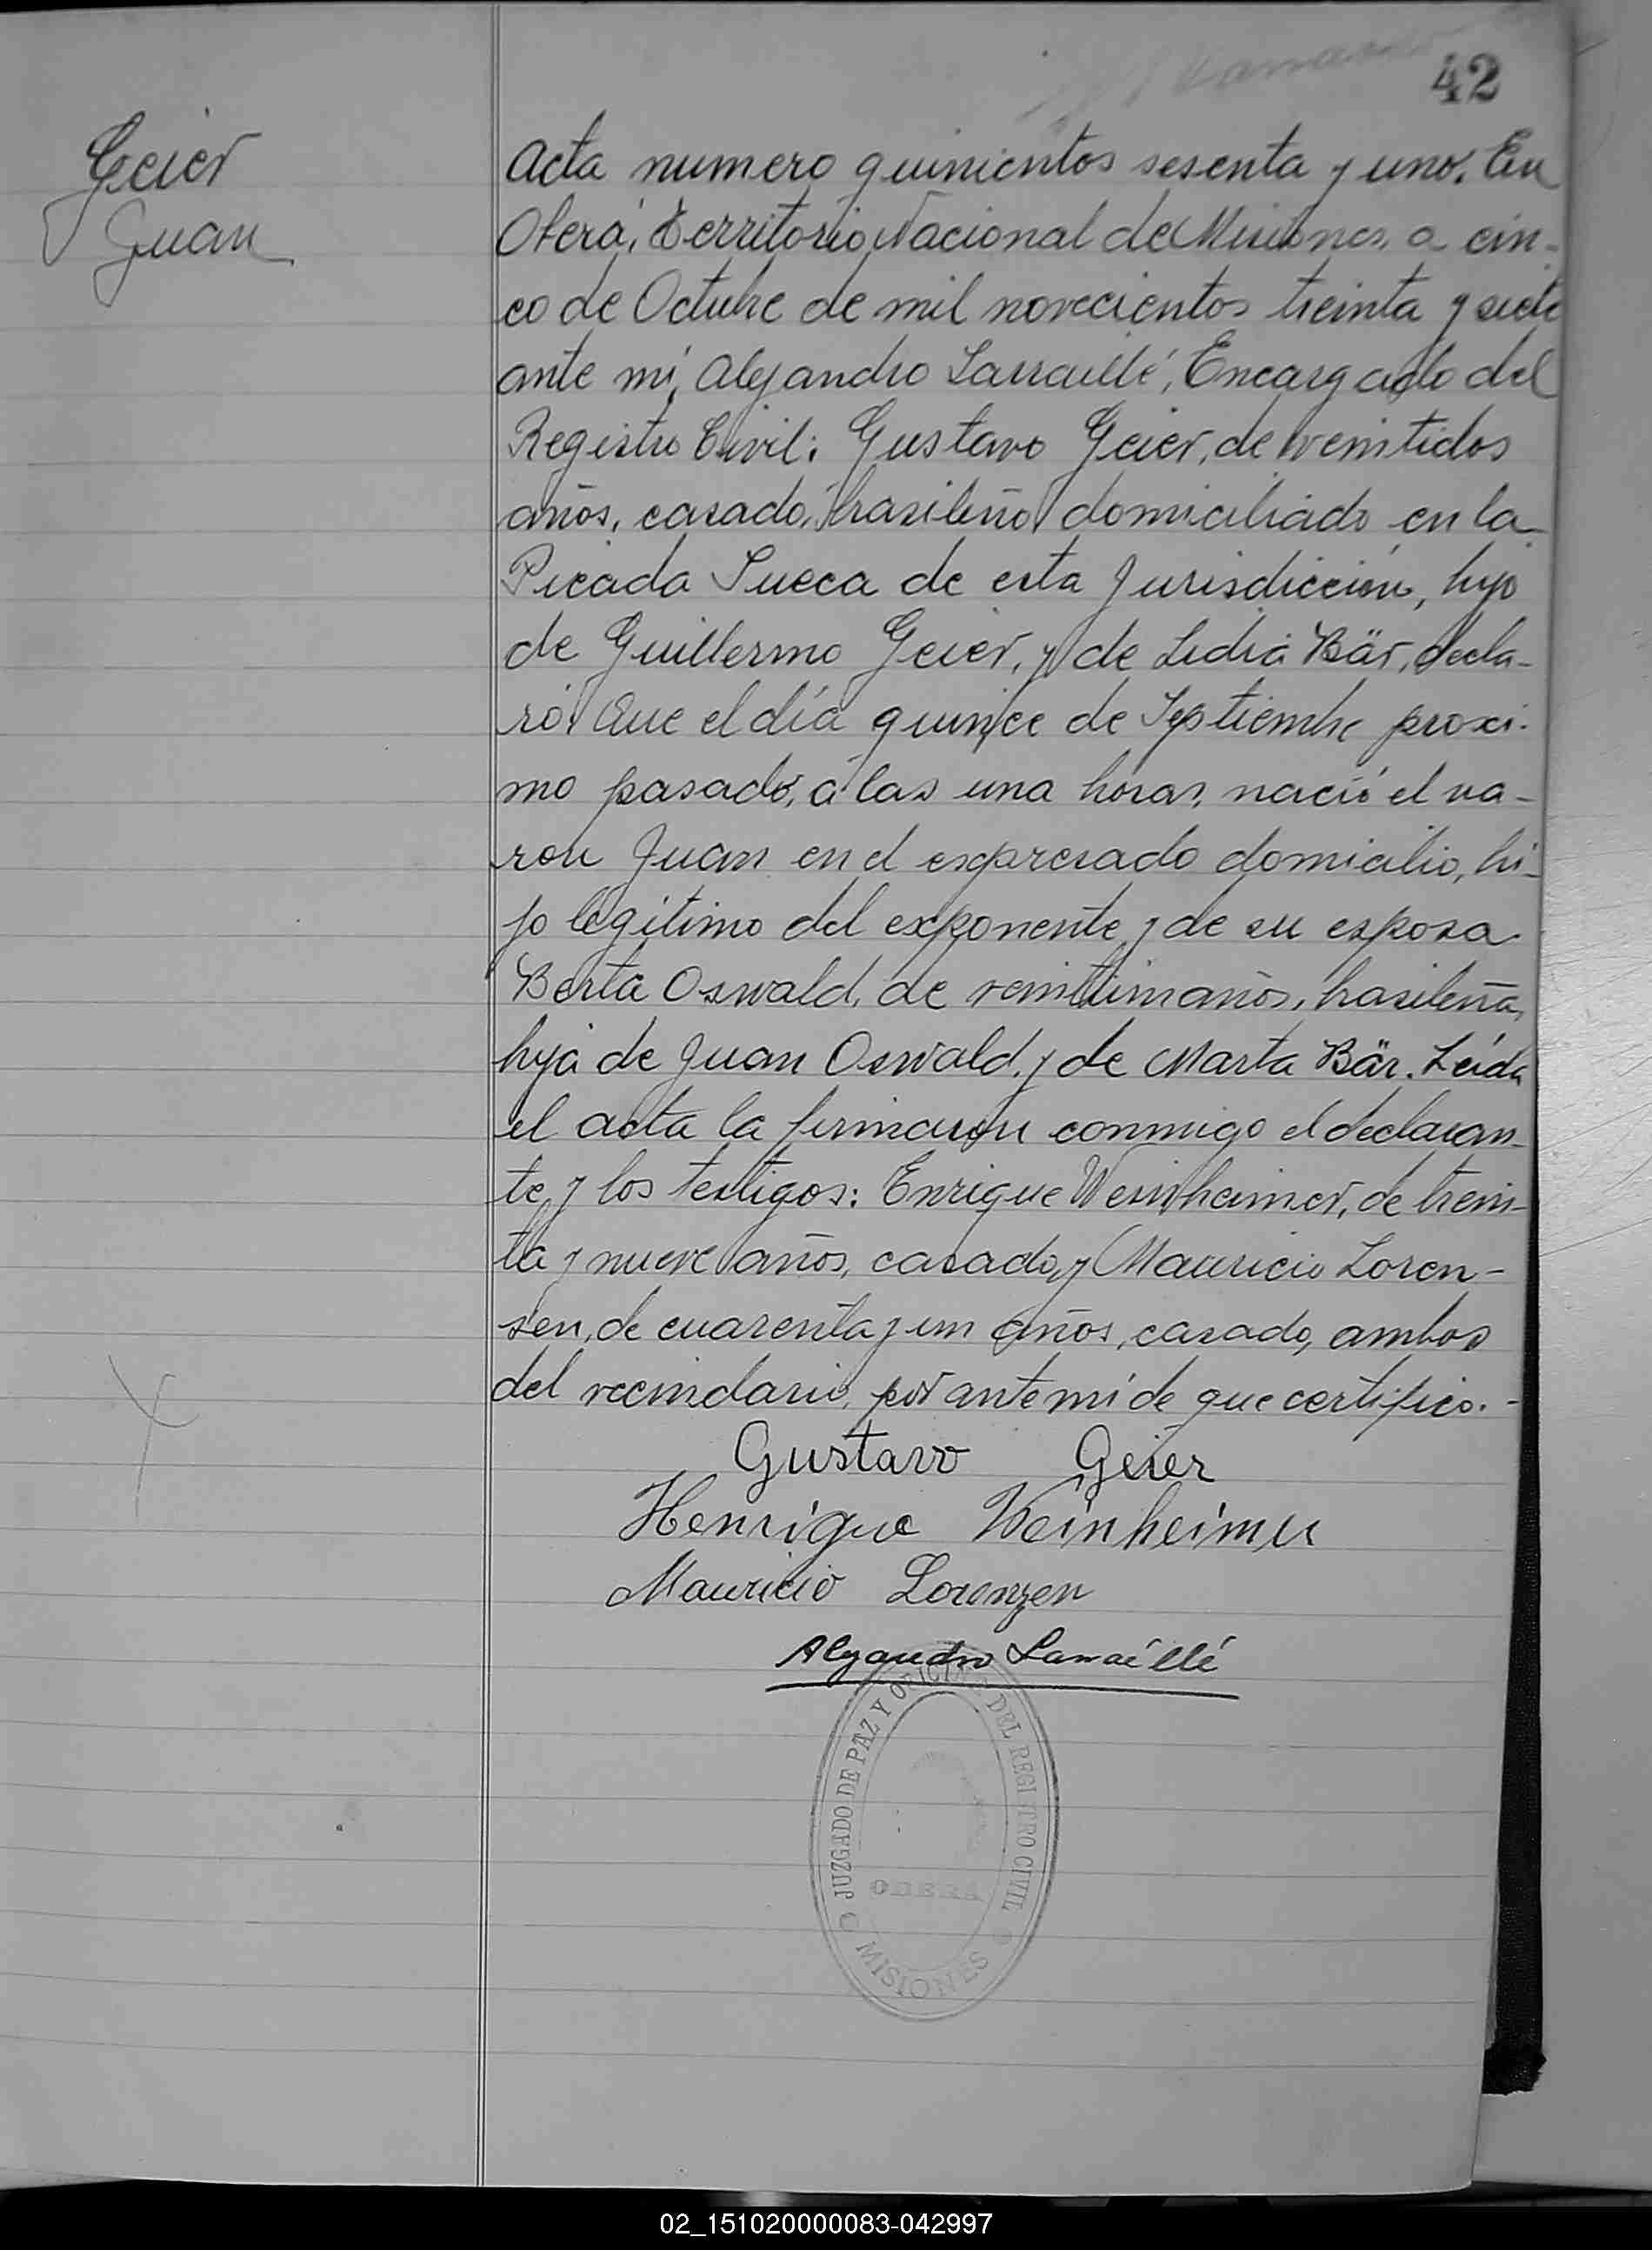 42
Geier
Juan
Acta numero quinientos sesenta y uno. En
Oberá, Territorio Nacional de Misiones, a cin-
co de Octubre de mil novecientos treinta y siete
ante mí, Alejandro Larraillé, Encargado del
Registro Civil: Gustavo Geier, de veintidos
años, casado, brasileño domiciliado en la
Picada Sueca de esta Jurisdicción, hijo
de Guillermo Geier, y de Lidia Bär, decla-
ró: Que el día quince de Septiembre proxi-
mo pasado, a las una horas, nació el va-
ron Juan en el expresado domicilio, hi-
jo legitimo del exponente y de su esposa
Berta Oswald, de veintiun años, brasileña,
hija de Juan Oswald, y de Marta Bär. Leída
el acta la firmaron conmigo el declaran-
te y los testigos: Enrique Weinheimer, de trein-
ta y nueve años, casado, y Mauricio Loren-
sen, de cuarenta y un años, casado, ambos
del vecindario, por ante mí de que certifico.-
Gustavo Geier
Henrique Weinheimer
Mauricio Lorenzen
Alejandro Larraíllé
JUZGADO DE PAZ Y OFICINA DEL REGISTRO CIVIL
OBERÁ
MISIONES
02_151020000083-042997